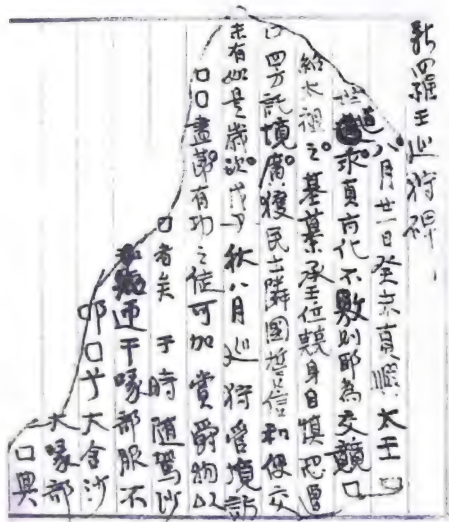 新羅王巡狩碑
八月廿一日癸未真興太王
世道求真旨化不敷則耶為交競□
紹太祖之基纂承王位兢身自慎恐曽
□四方託境廣獲民土隣國誓信和使交
未有如是歲次戊子秋八月巡狩管境訪
□□盡莭有功之徒可加賞爵物以
□者矣 于時隨駕沙
迊干喙部服不
□兮大舍沙
大喙部
□興